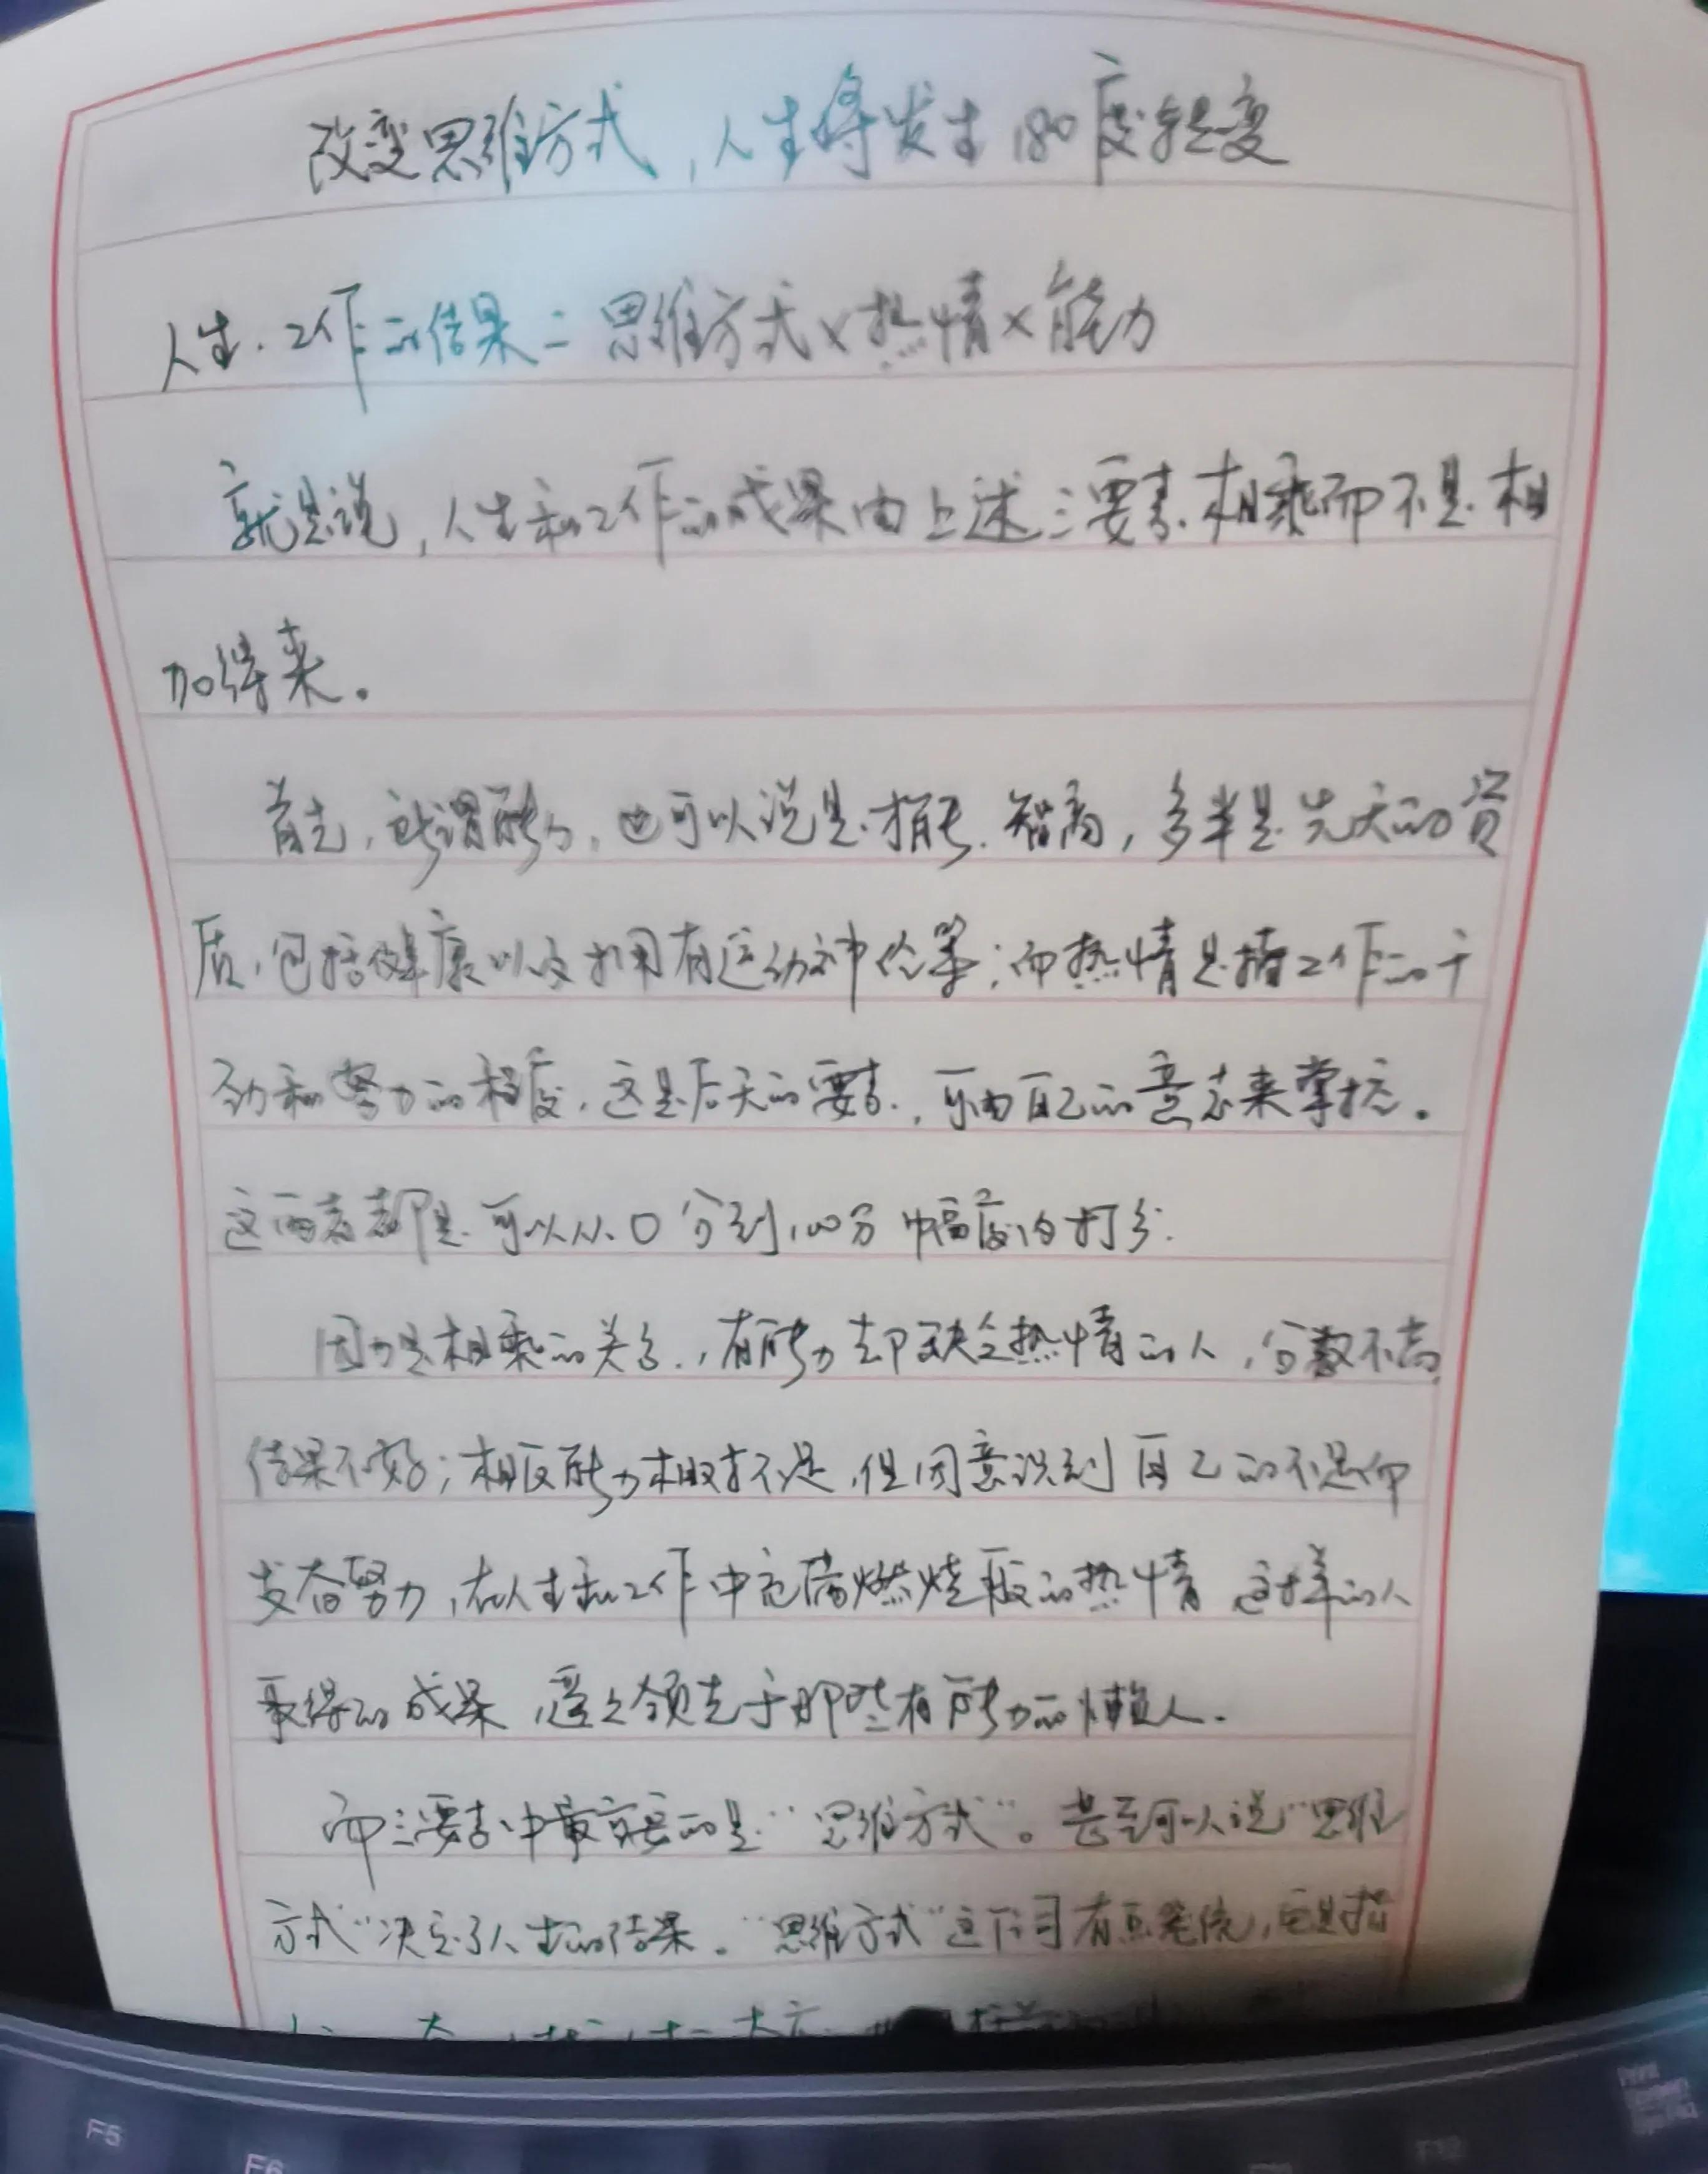 改变思维方式，人生将发生180度转变
人生·工作的结果=思维方式×热情×能力
就是说，人生和工作的成果由上述三要素相乘而不是相
加得来。
首先，所谓能力，也可以说是才能、智商，多半是先天的资
质，包括健康以及拥有运动神经等；而热情是指工作的干
劲和努力的程度，这是后天的要素，可由自己的意志来掌控。
这两者都是可以从0分到100分幅度内打分.
因为是相乘的关系，有能力却缺乏热情的人，分数不高，
结果不好；相反能力相对不足，但因意识到自己的不足而
发奋努力，在人生和工作中充满燃烧般的热情 这样的人
取得的成果，遥遥领先于那些有能力的懒人.
而三要素中最重要的是“思维方式”。甚至可以说“思维
方式”决定了人生的结果。“思维方式”这个词有点笼统，它是指
F5
F6